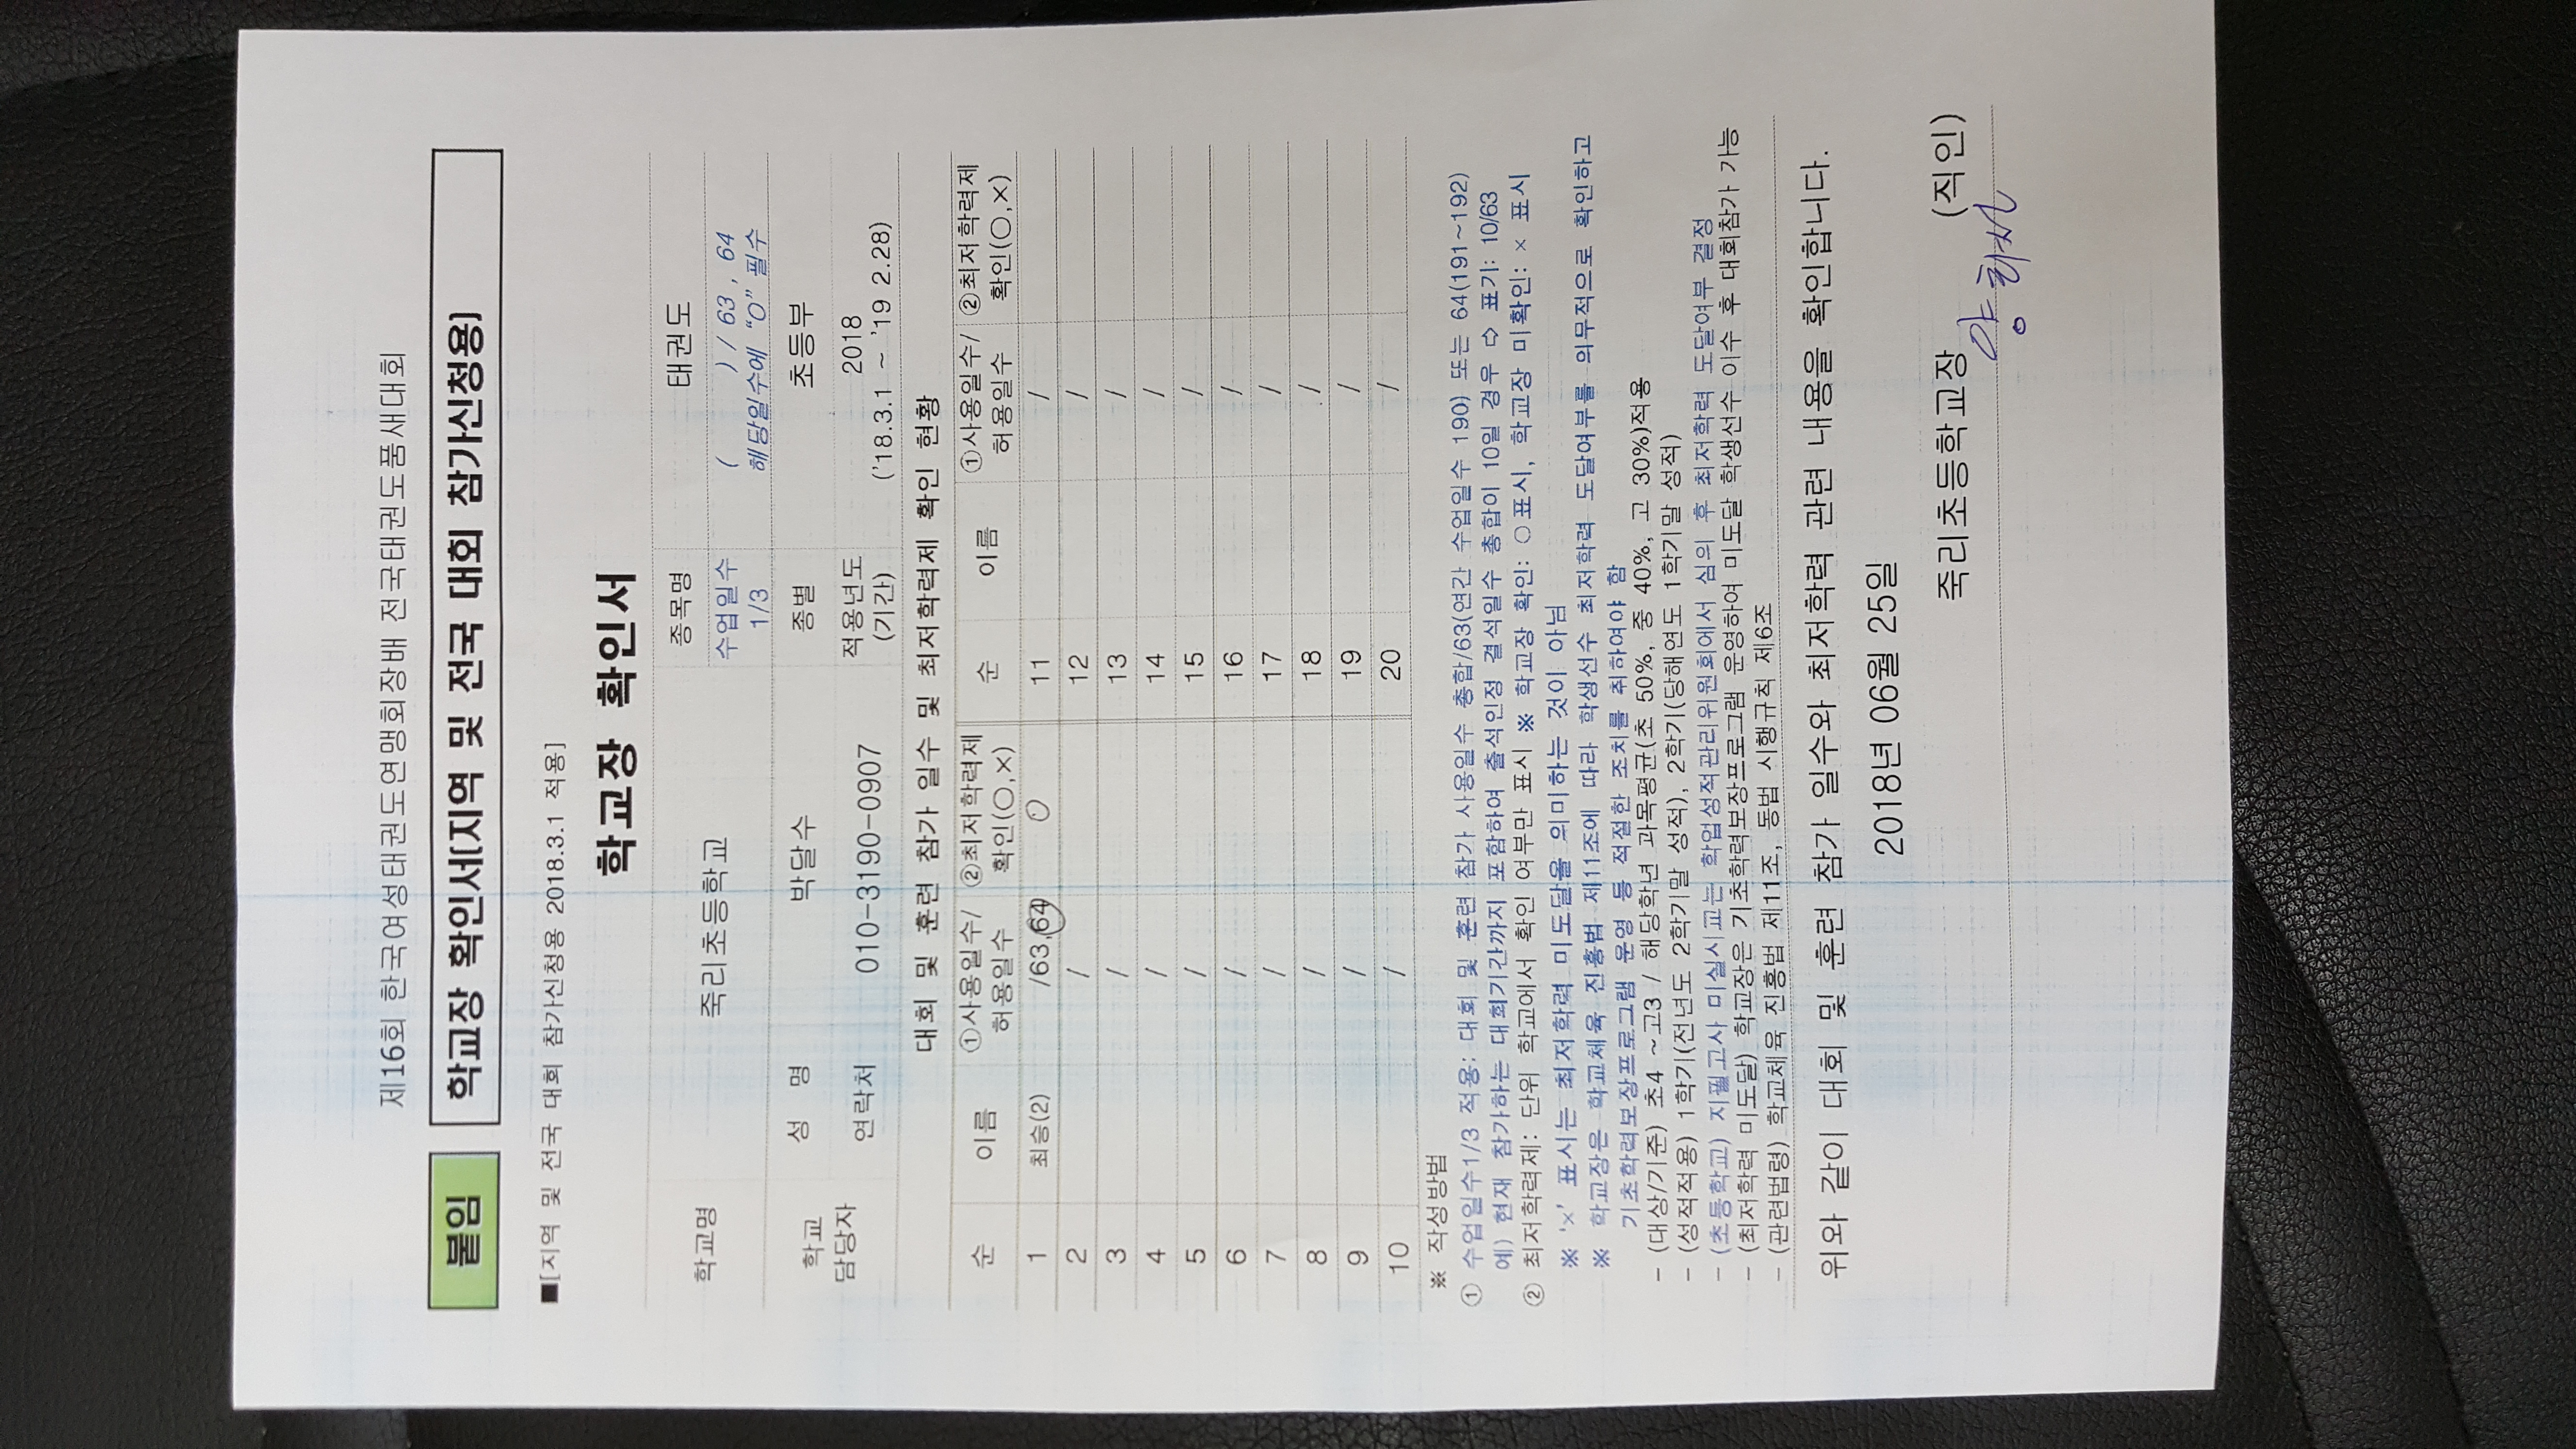 제16회 한국여성태권도연맹회장배 전국태권도품새대회
붙임 학교장 확인서(지역 및 전국 대회 참가신청용)
■[지역 및 전국 대회 참가신청용 2018.3.1 적용]
학교장 확인서
학교명 죽리초등학교 종목명 태권도
수업일수 1/3 ( ) / 63 , 64
해당일수에 "O" 필수
학교 담당자 성 명 박달수 종별 초등부
연락처 010-3190-0907 적용년도 (기간) 2018
('18.3.1 ~ '19 2.28)
대회 및 훈련 참가 일수 및 최저학력제 확인 현황
순 이름 ①사용일수/ 허용일수 ②최저학력제 확인(○,×) 순 이름 ①사용일수/ 허용일수 ②최저학력제 확인(○,×)
1 최승(2) /63,64 O 11 /
2 / 12 /
3 / 13 /
4 / 14 /
5 / 15 /
6 / 16 /
7 / 17 /
8 / 18 /
9 / 19 /
10 / 20 /
※ 작성방법
① 수업일수1/3 적용: 대회 및 훈련 참가 사용일수 총합/63(연간 수업일수 190) 또는 64(191~192)
예) 현재 참가하는 대회기간까지 포함하여 출석인정 결석일수 총합이 10일 경우 ⇨ 표기: 10/63
② 최저학력제: 단위 학교에서 확인 여부만 표시 ※ 학교장 확인: ○표시, 학교장 미확인: × 표시
※ '×' 표시는 최저학력 미도달을 의미하는 것이 아님
※ 학교장은 학교체육 진흥법 제11조에 따라 학생선수 최저학력 도달여부를 의무적으로 확인하고
기초학력보장프로그램 운영 등 적절한 조치를 취하여야 함
- (대상/기준) 초4 ~고3 / 해당학년 과목평균(초 50%, 중 40%, 고 30%)적용
- (성적적용) 1학기(전년도 2학기말 성적), 2학기(당해연도 1학기말 성적)
- (초등학교) 지필고사 미실시교는 학업성적관리위원회에서 심의 후 최저학력 도달여부 결정
- (최저학력 미도달) 학교장은 기초학력보장프로그램 운영하여 미도달 학생선수 이수 후 대회참가 가능
- (관련법령) 학교체육 진흥법 제11조, 동법 시행규칙 제6조
위와 같이 대회 및 훈련 참가 일수와 최저학력 관련 내용을 확인합니다.
2018년 06월 25일
죽리초등학교장 (직인)